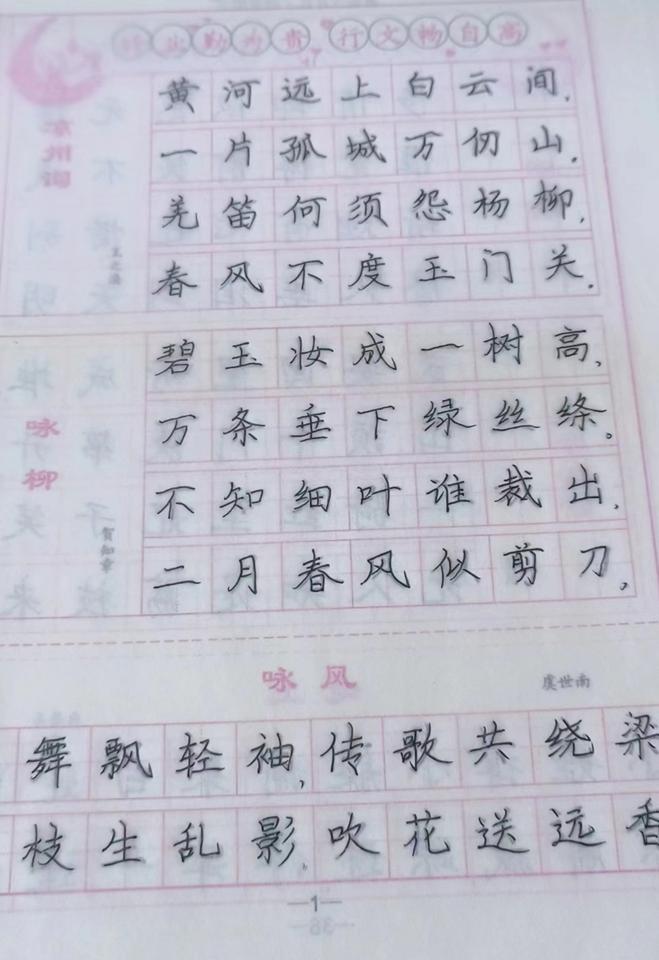 勤为贵 行文畅自高
凉州词
王之涣
黄河远上白云间,
一片孤城万仞山.
羌笛何须怨杨柳,
春风不度玉门关.
咏柳
贺知章
碧玉妆成一树高,
万条垂下绿丝绦。
不知细叶谁裁出,
二月春风似剪刀,
咏风
虞世南
舞飘轻袖,传歌共绕梁
枝生乱影,吹花送远香
1